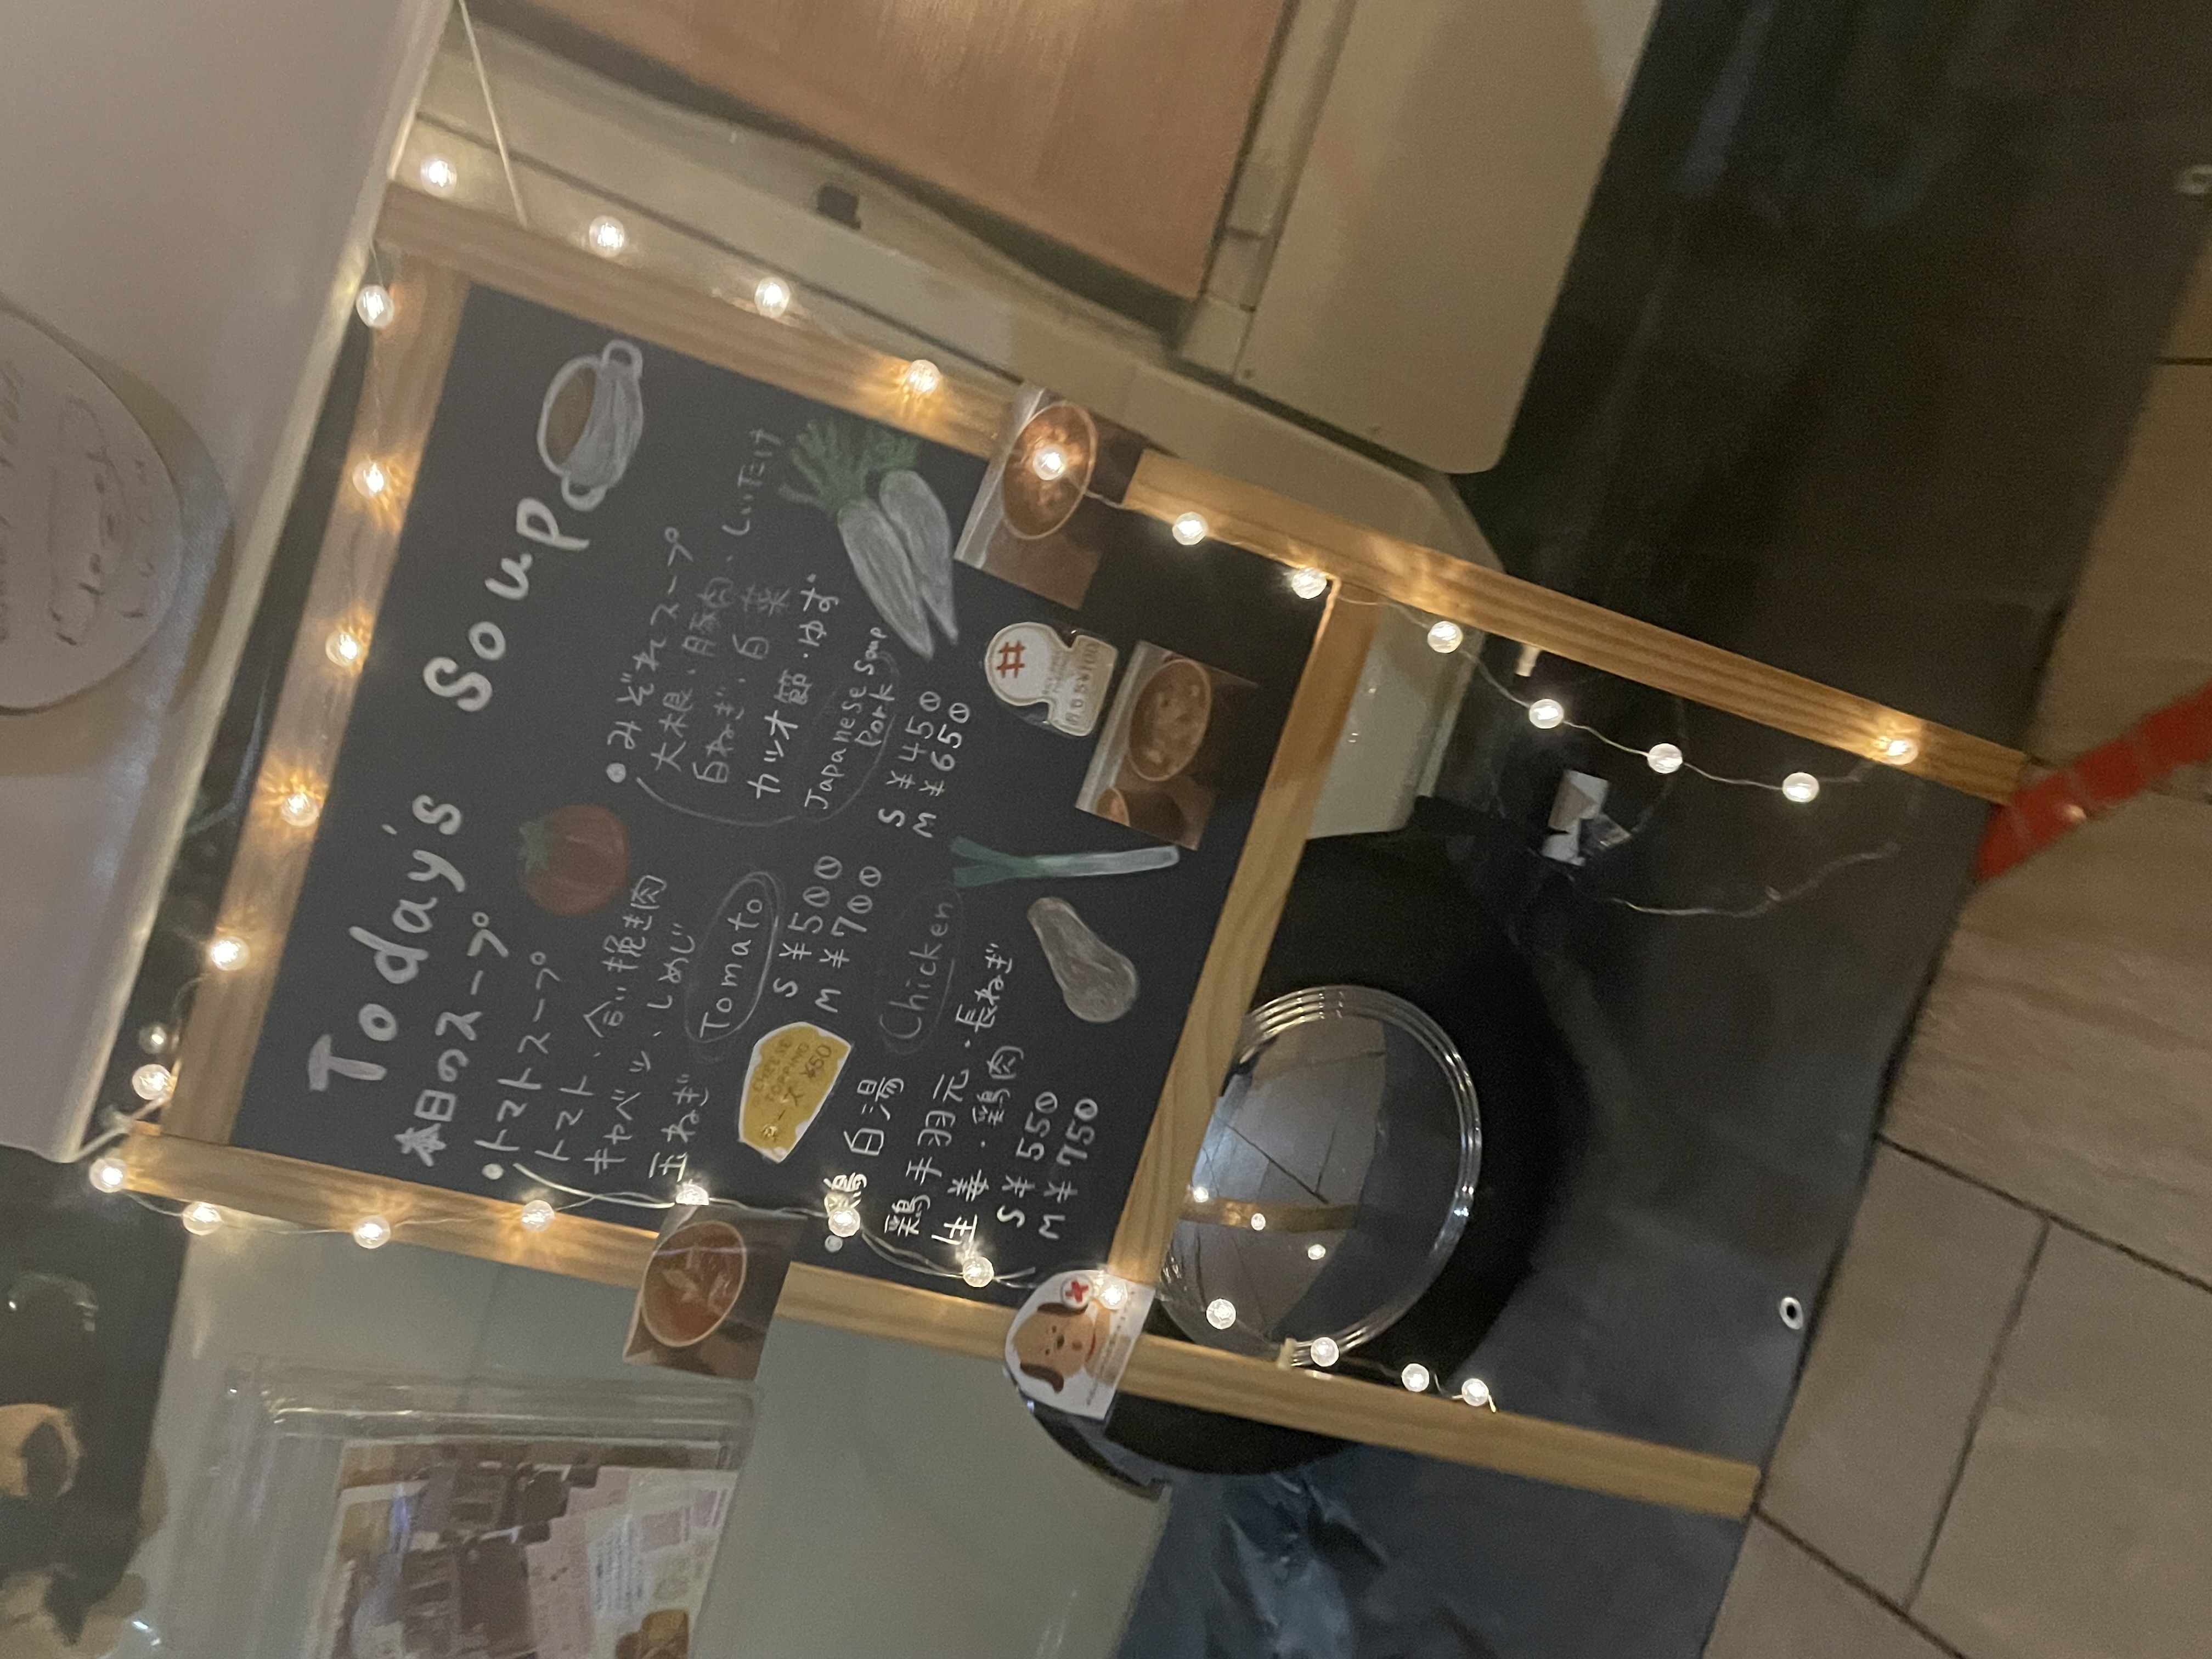 Today's Soup
本日のスープ
•トマトスープ
トマト・合い挽き肉
キャベツ・しめじ
玉ねぎ
Tomato
S ¥500
M ¥700
CHEESE
TOPPING
チーズ ¥50
•みぞれスープ
大根・豚肉・しいたけ
白ねぎ・白菜
カツオ節・ゆず
Japanese Soup
Pork
S ¥450
M ¥650
Chicken
•鶏白湯
鶏手羽元・長ねぎ
生姜・鶏肉
S ¥550
M ¥750